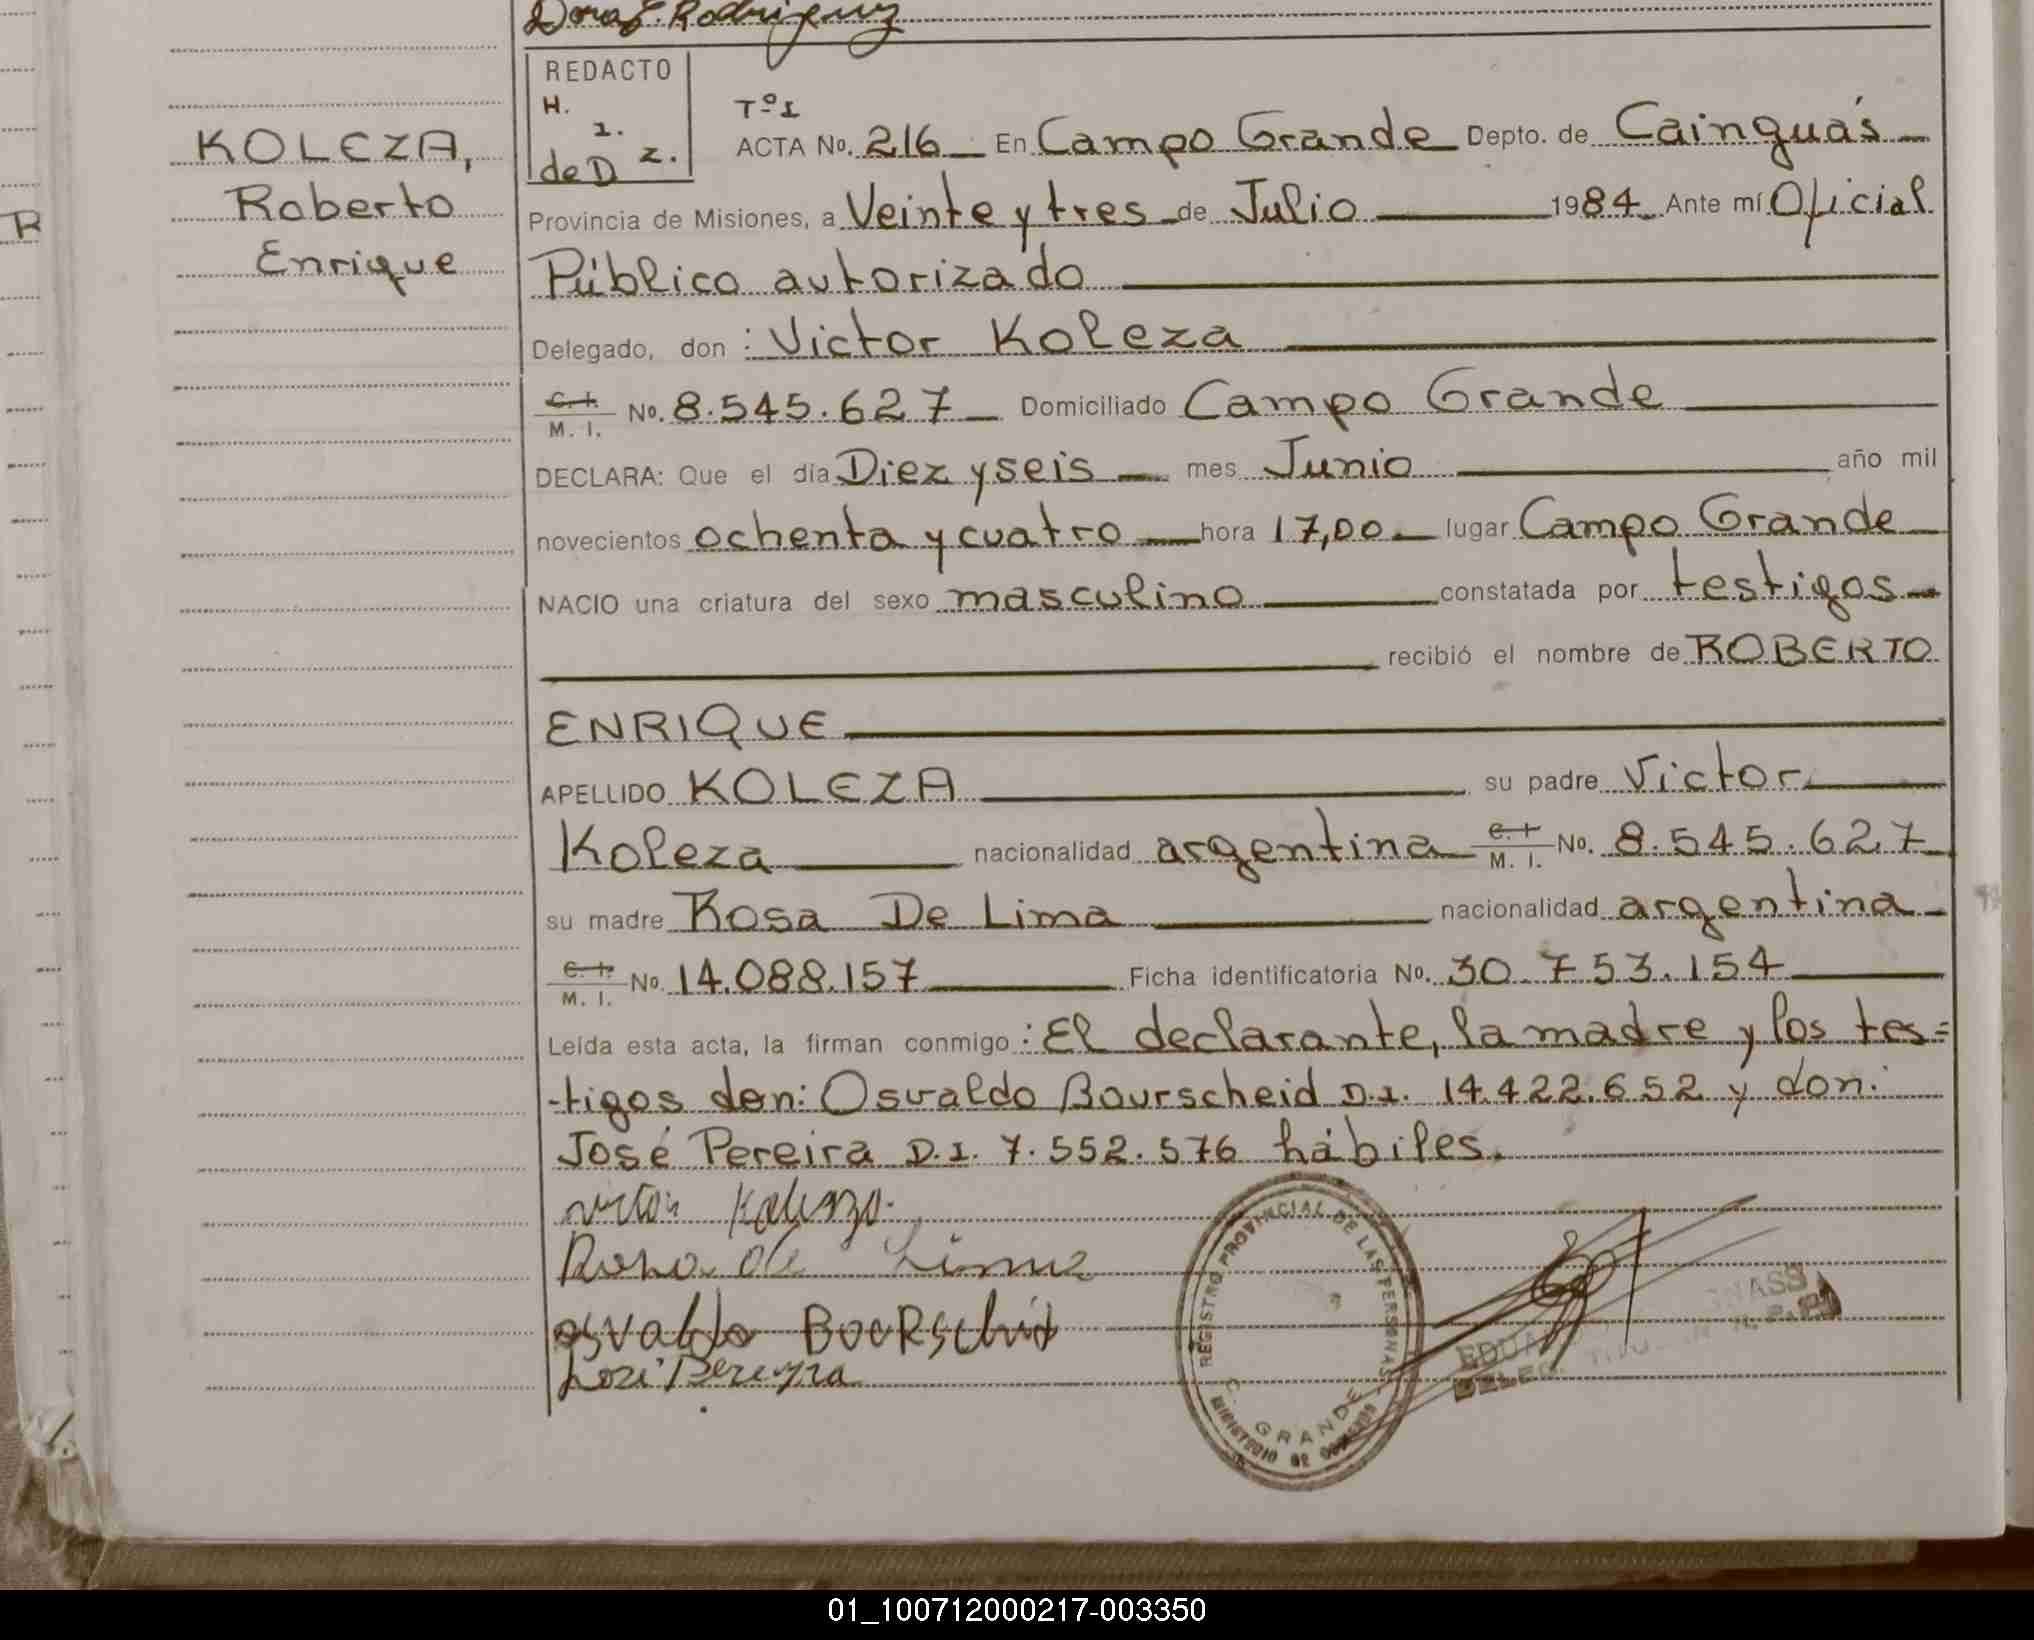 Dora E. Rodriguez
REDACTO
H.
1.
de D z.
KOLEZA,
Roberto
Enrique
R
Tº I
ACTA No. 216 En Campo Grande Depto. de Cainguás
Provincia de Misiones, a Veinte y tres de Julio 1984 Ante mí Oficial
Público autorizado
Delegado, don : Victor Koleza
C. I. M. I. No. 8.545.627 Domiciliado Campo Grande
DECLARA: Que el día Diez y seis mes Junio año mil
novecientos ochenta y cuatro hora 17,00 lugar Campo Grande
NACIO una criatura del sexo masculino constatada por testigos
recibió el nombre de ROBERTO
ENRIQUE
APELLIDO KOLEZA su padre Victor
Koleza nacionalidad argentina C. I. M. I. No. 8.545.627
su madre Rosa De Lima nacionalidad argentina
C. I. M. I. No. 14.088.157 Ficha identificatoria No. 30.753.154
Leída esta acta, la firman conmigo : El declarante, la madre y los tes=
-tigos don: Osvaldo Bourscheid D.I. 14.422.652 y don:
José Pereira D.I. 7.552.576 hábiles.
victor Koleza.
Rosa de Lima
osvaldo BOURScheid
José Pereyra
REGISTRO PROVINCIAL DE LAS PERSONAS
C. GRANDE
MINISTERIO DE GOBIERNO
01_100712000217-003350